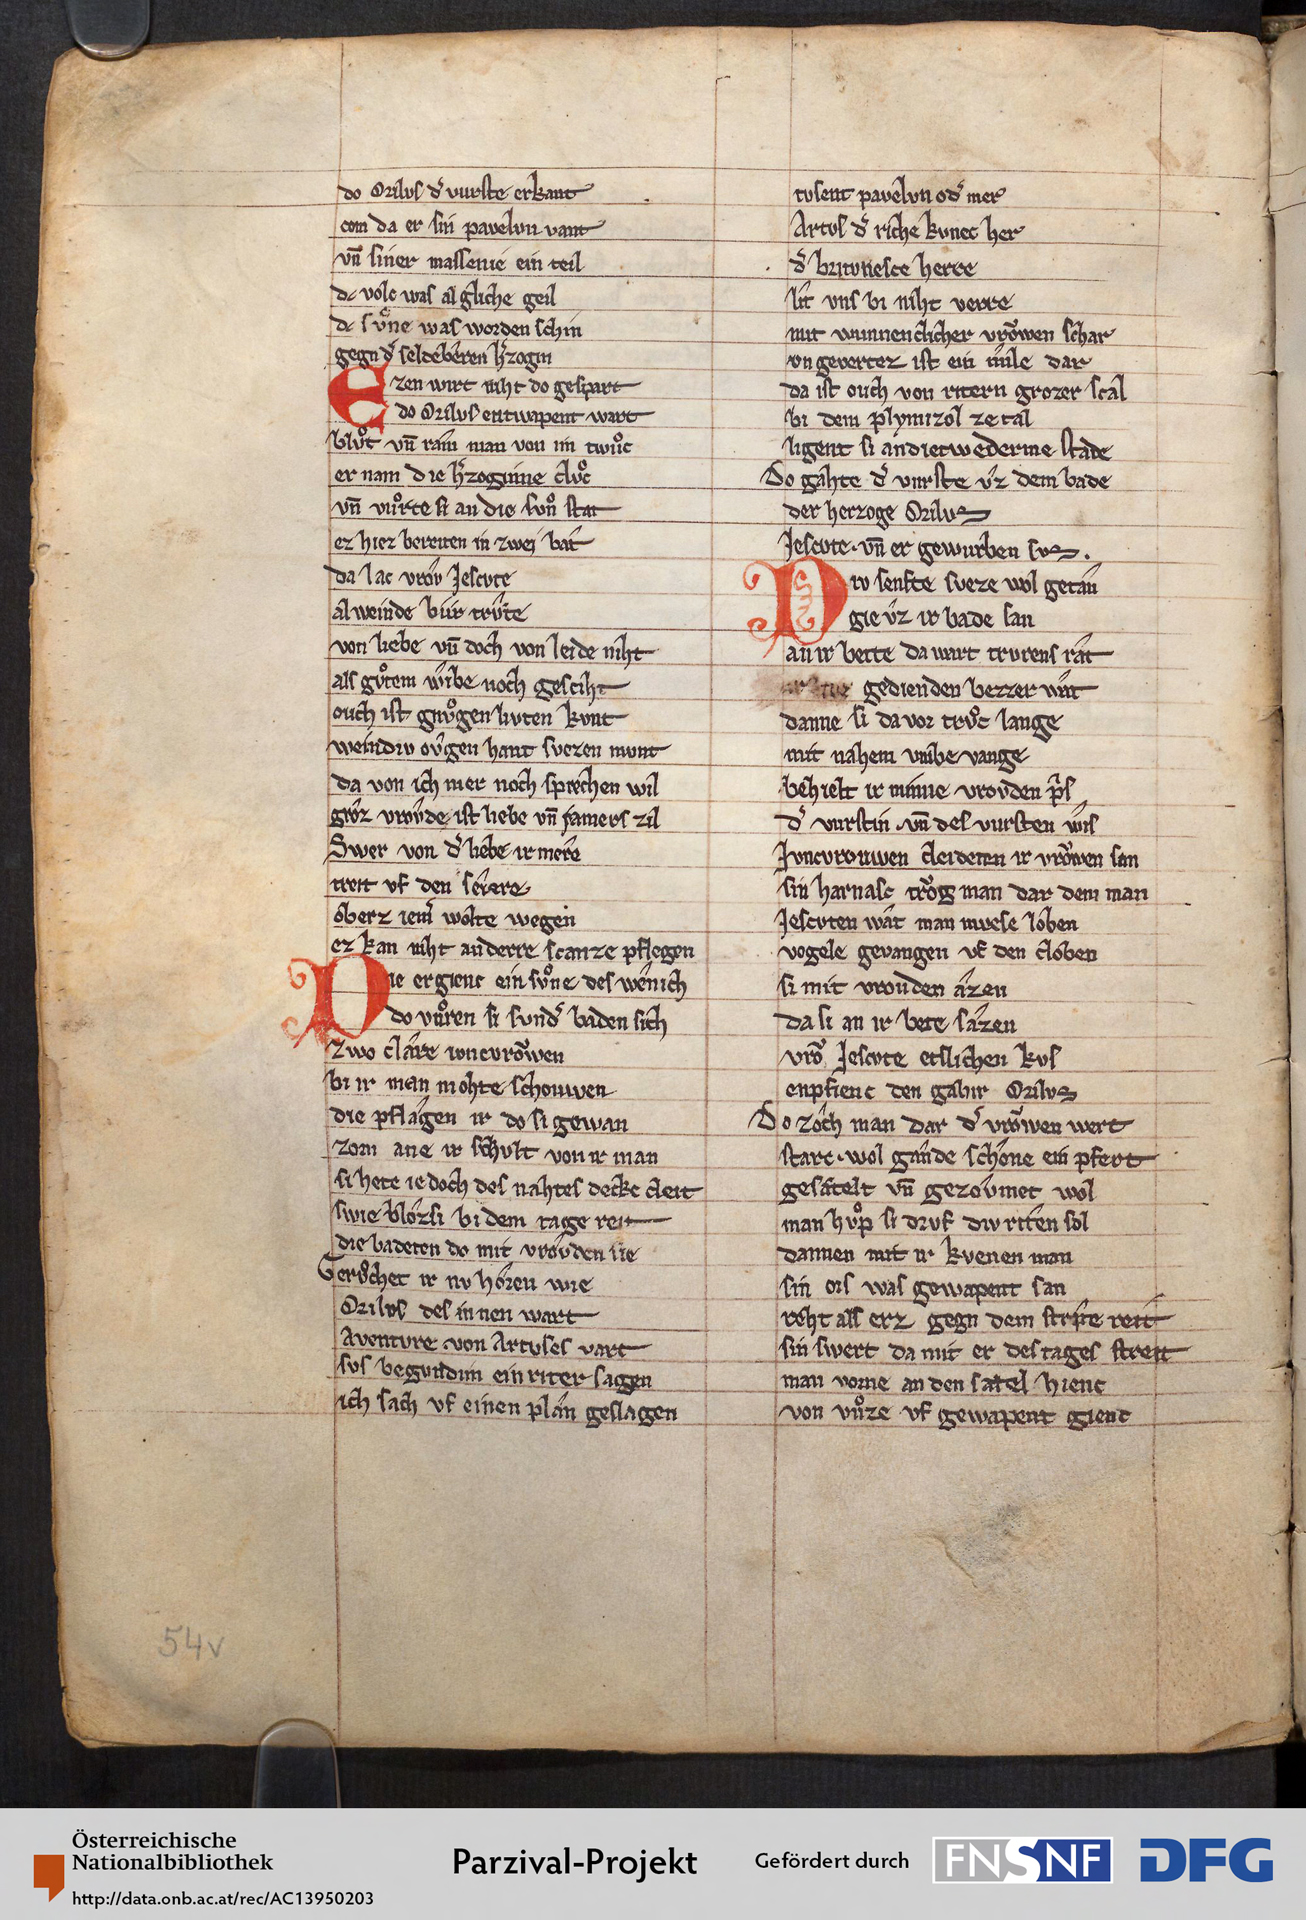 do Orilvs dͤ vurste erkant
com da er sin pavelvn vant
vn̄ siner massenie ein teil
dc volc was al gliche geil
dc svͦne was worden schin
gegn dͤ seldebêren h̾zogin
Ezen wirt niht do gespart
do Orilvs entwapent wart
blvͦt vn̄ râm man von im twuͦc
er nam die h̾zoginne clvͦc
vn̄ vuͦrte si an die svͦn stat
er hiez bereiten in zwei bât
da lac vrôv Jescvte
al weinde bi ir trûte
von liebe vn̄ doch von leide niht
als gvͦtem wîbe noch gesciht
ouch ist gnvͦgen livten kvnt
weindiv ovgen hant svezen munt
da von ich mer noch sprechen wil
grôz vrovde ist liebe vn̄ jamers zil
Swer von dͤ liebe ir mêre
treit vf den seiere
oberz iem̾ wolte wegen
ez kan niht anderre scanze pflegen
Die ergienc ein svͦne des wên ich
do vuͦren si svndͤ baden sich
zwo clâre ivncvrôwen
bi ir man mohte schouwen
die pflâgen ir do si gewan
zorn ane ir schvlt von ir man
si hete iedoch des nahtes decke cleit
swie blôz si bi dem tage reit
die badeten do mit vrôvden sie
Gervͦchet ir nv hôren wie
Orilvs des innen wart
Aventvre von Artvses vart
svs begvnd im ein riter sagen
ich sach vf einen plân geslagen
tvsent pavelvn odͤ mer
Artvs dͤ riche kvnec her
dͤ britvnesce herre
lît vns bi niht verre
mit wunnenclicher vrôwen schar
vngevertez ist ein mîle dar
da ist ouch von ritern grozer scâl
bi dem plymizol ze tal
ligent si an dietwederme stade
Do gâhte dͤ vurste vz dem bade
der herzoge Orilvs
Jescvte vn̄ er gewurben svs.
Div senfte sveze wol getân
gie vz ir bade san
an ir bette da wart trvrens rât
gedienden bezzer wât
danne si da vor trvͦc lange
mit nahem vmbe vange
behielt ir minne vrovden prîs
dͤ vurstin vn̄ des vursten wîs
Jvncvrouwen cleideten ir vrôwen san
sin harnasc trôg man dar dem man
Jescvten wât man mvese loben
vogele gevangen vf den cloben
si mit vrouden âzen
da si an ir bete sâzen
vrô Jescvte etslichen kvs
enpfienc den gab ir Orilvs
Do zôch man dar dͤ vrôwen wert
starc wol gânde schône ein pfert
gesâtelt vn̄ gezovmet wol
man hvͦp si drvf div riten sol
dannen mit ir kvenen man
sin ors was gewapent san
reht als erz gegn dem strîte reit
sin swert da mit er des tages streit
man vorne an den satel hienc
von vuͦze vf gewapent gienc
54v
Österreichische
Nationalbibliothek
http://data.onb.ac.at/rec/AC13950203
Parzival-Projekt
Gefördert durch
FNSNF
DFG